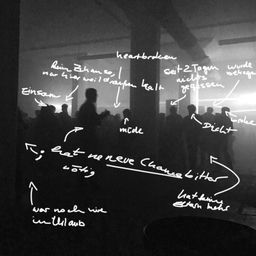 heartbroken
kein Zuhause
nur hier weil draußen kalt
seit 2 Tagen
nichts
gegessen
wurde
betrogen
Einsam
müde
Dicht
hat ne neue Chance bitter
nötig
hat keine
Eltern mehr
war noch nie
im Urlaub